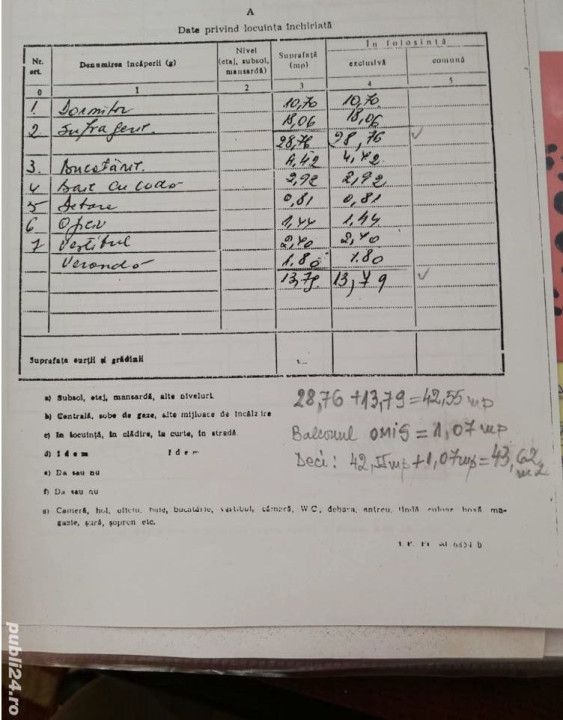 A
Date privind locuința închiriată
Nr. crt. | Denumirea încăperii (g) | Nivel (etaj, subsol, mansardă) | Suprafață (mp) | În folosință
exclusivă | comună
0 | 1 | 2 | 3 | 4 | 5
1. Dormitor 10,70 10,70
2 Sufragerie 18,06 18,06
28,76 28,76
3. Bucătărie. 4,42 4,42
4 Baie cu cadă 2,92 2,92
5 Debara 0,81 0,81
6 Oficiu 1,44 1,44
7 Vestibul 2,40 2,40
Verandă 1.80 1.80
13,79 13,79
Suprafața curții și grădinii
a) Subsol, etaj, mansardă, alte niveluri
b) Centrală, sobe de gaze, alte mijloace de încălzire
c) În locuință, în clădire, în curte, în stradă
d) Idem Idem
e) Da sau nu
f) Da sau nu
g) Cameră, hol, oficiu, baie, bucătărie, vestibul, cămară, W.C., debara, antreu, tindă, culoar, boxă, ma-
gazie, șură, șopron etc.
28,76 + 13,79 = 42,55 mp
Balconul OMIS = 1,07 mp
Deci: 42,55 mp + 1,07 mp = 43,62 m2
publi24.ro